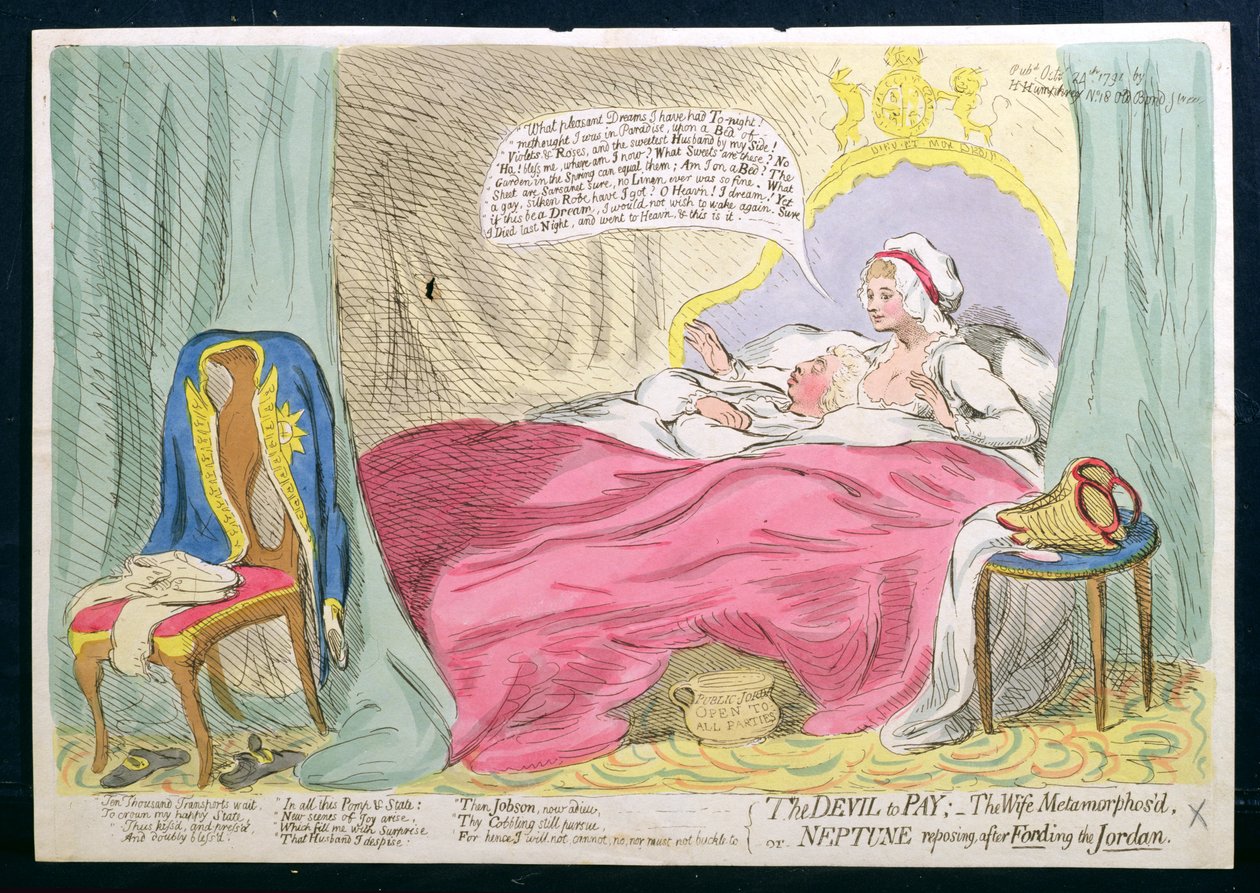 Pubd. Octr. 24th. 1791 by
H. Humphrey No. 18 Old Bond Street
DIEU ET MON DROIT
"What pleasant Dreams I have had To-night!
"methought I was in Paradise, upon a Bed of
"Violets & Roses, and the sweetest Husband by my Side!
"Ha! bless me, where am I now? What Sweets are these? No
"Garden in the Spring can equal them; Am I on a Bed? The
"Sheet are Sarsanet sure, no Linen ever was so fine. What
"a gay, silken Robe have I got? O Heav'n! I dream! Yet
"if this be a Dream, I would not wish to wake again. Sure
"I Died last Night, and went to Heav'n, & this is it.
PUBLIC JORDAN
OPEN TO
ALL PARTIES
"Ten Thousand Transports wait,
To crown my happy State,
"Thus kiss'd, and press'd,
And doubly bless'd.
"In all this Pomp & State:
"New scenes of Joy arise,
"Which fill me with Surprise
"That Husband I despise.
"Then Jobson, now adieu,
"Thy Cobling still pursue
"For hence I will not, cannot, no, nor must not buckle to
The DEVIL to PAY; _ The Wife Metamorphos'd,
or NEPTUNE reposing, after Fording the Jordan.